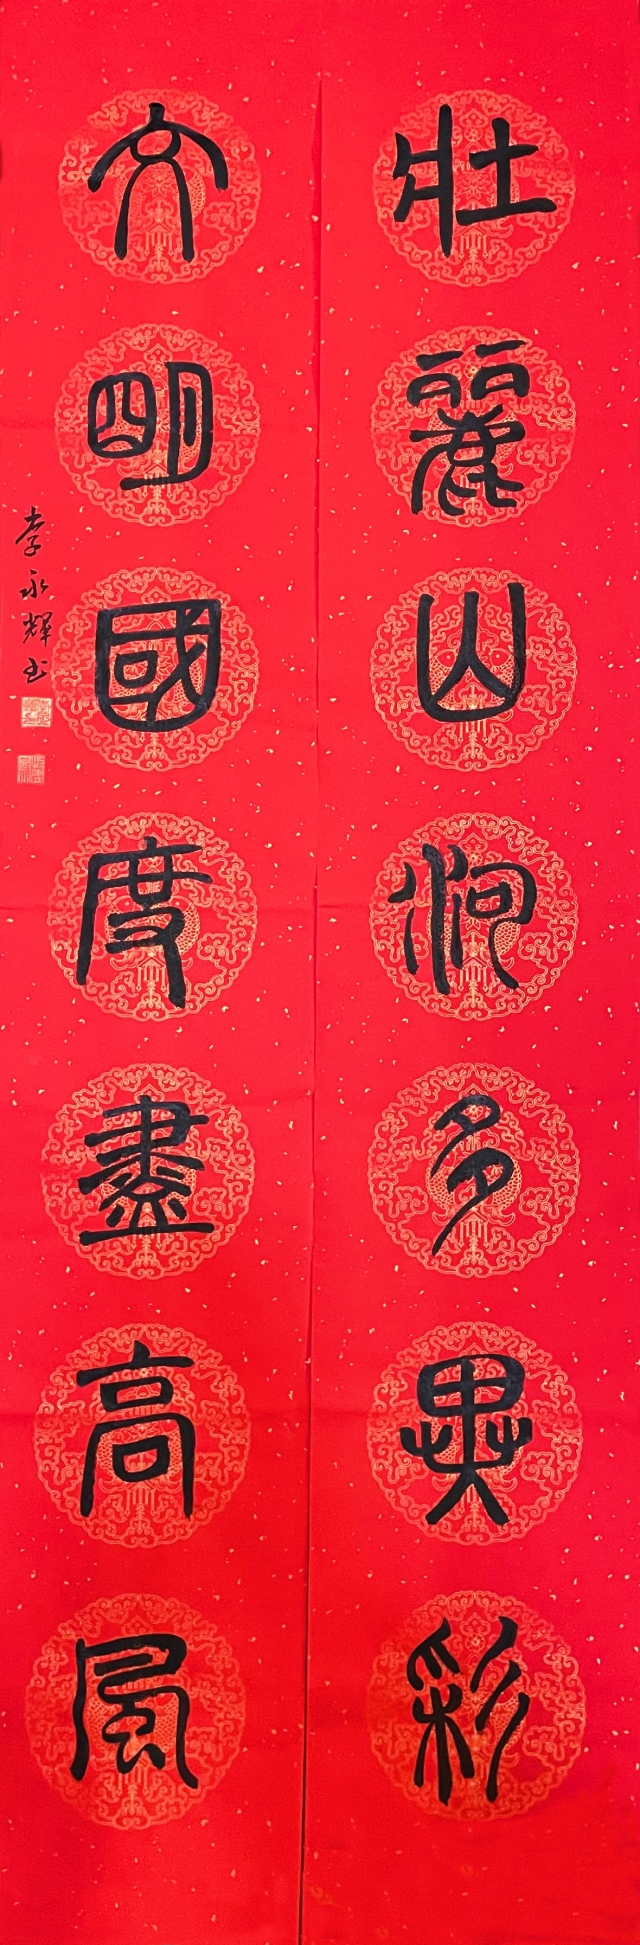 壯麗山河多異彩
文明國度盡高風
李永輝书